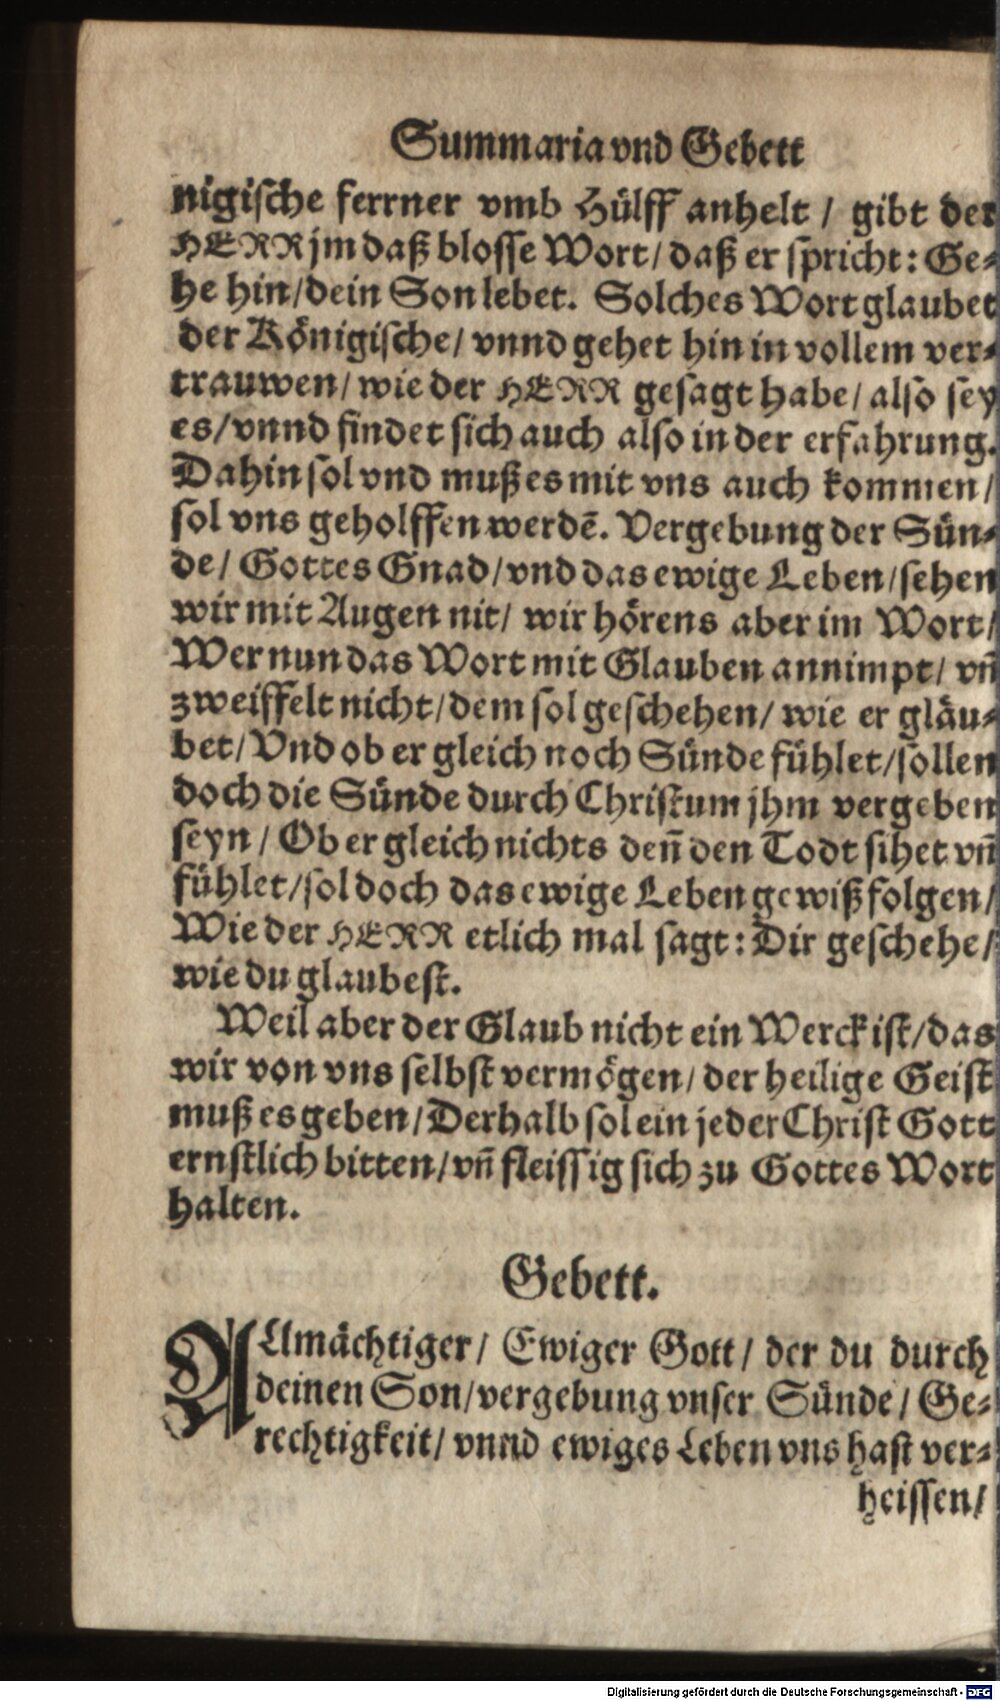 Summaria vnd Gebett
nigische ferrner vmb Hülff anhelt / gibt der
HERR jm daß blosse Wort / daß er spricht: Ge-
he hin / dein Son lebet. Solches Wort glaubet
der Königische / vnnd gehet hin in vollem ver-
trauwen / wie der HERR gesagt habe / also sey
es / vnnd findet sich auch also in der erfahrung.
Dahin sol vnd muß es mit vns auch kommen /
sol vns geholffen werdē. Vergebung der Sün-
de / Gottes Gnad / vnd das ewige Leben / sehen
wir mit Augen nit / wir hörens aber im Wort /
Wer nun das Wort mit Glauben annimpt / vñ
zweiffelt nicht / dem sol geschehen / wie er gläu-
bet / Vnd ob er gleich noch Sünde fühlet / sollen
doch die Sünde durch Christum jhm vergeben
seyn / Ob er gleich nichts deñ den Todt sihet vñ
fühlet / sol doch das ewige Leben gewiß folgen /
Wie der HERR etlich mal sagt: Dir geschehe /
wie du glaubest.
Weil aber der Glaub nicht ein Werck ist / das
wir von vns selbst vermögen / der heilige Geist
muß es geben / Derhalb sol ein jeder Christ Gott
ernstlich bitten / vñ fleissig sich zu Gottes Wort
halten.
Gebett.
ALlmächtiger / Ewiger Gott / der du durch
deinen Son / vergebung vnser Sünde / Ge-
rechtigkeit / vnnd ewiges Leben vns hast ver-
heissen /
Digitalisierung gefördert durch die Deutsche Forschungsgemeinschaft - DFG